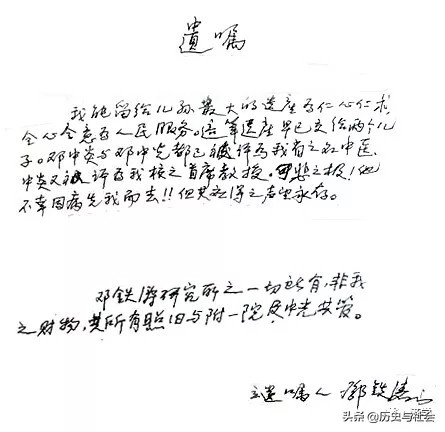 遗嘱
我能留给儿孙最大的遗产为仁心仁术,
全心全意为人民服务。这笔遗产早已交给两个儿
子。邓中炎与邓中光都已被评为我省之名中医,
中炎又被评为我校之首席教授。可惜之极!他
不幸因病先我而去!!但其之声望永存。
邓铁涛研究所之一切所有,非我
之财物,其所有照旧与附一院及中光共管。
立遗嘱人 邓铁涛
头条 @历史与社会